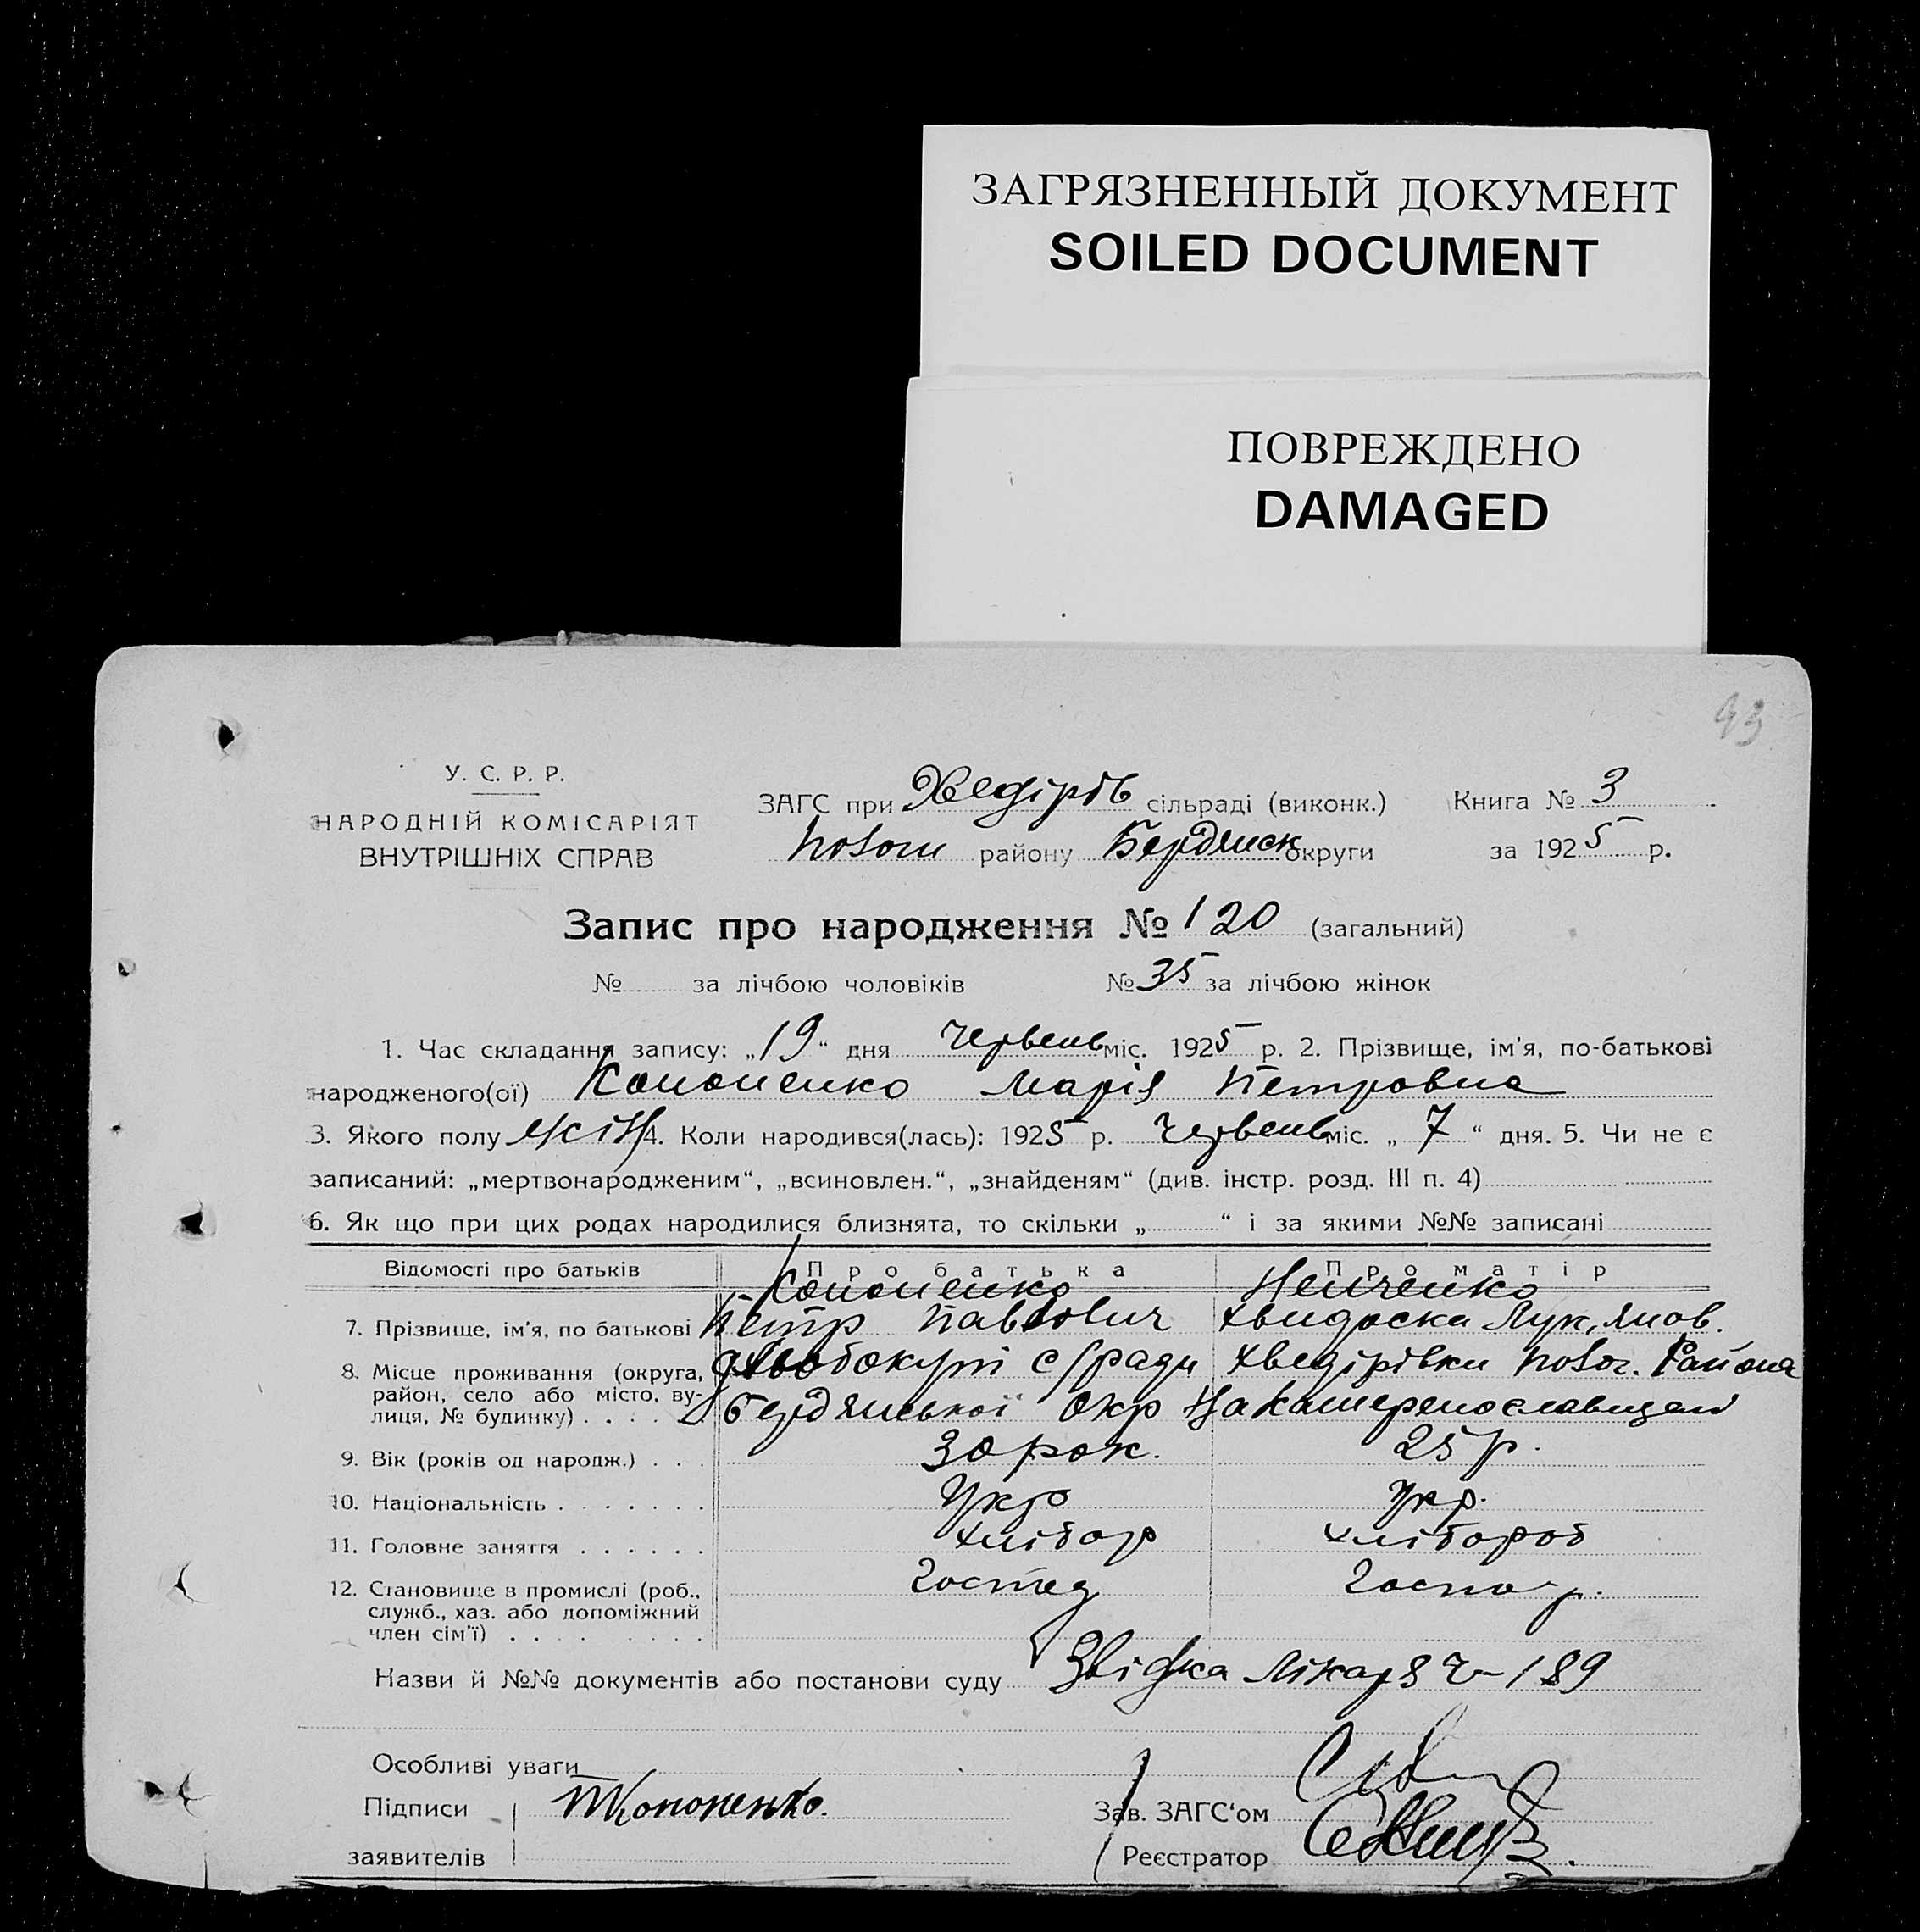 ЗАГРЯЗНЕННЫЙ ДОКУМЕНТ
SOILED DOCUMENT
ПОВРЕЖДЕНО
DAMAGED
93
У. С. Р. Р.
НАРОДНІЙ КОМІСАРІЯТ
ВНУТРІШНІХ СПРАВ
ЗАГС при Хведірів сільраді (виконк.) Книга № 3
району Бердянск округи за 1925 р.
Запис про народження № 120 (загальний)
№ за лічбою чоловіків № 35 за лічбою жінок
1. Час складання запису: „19“ дня Червень міс. 1925 р. 2. Прізвище, ім'я, по-батькові
народженого(ої) Кононенко Марія Петровна
3. Якого полу жін 4. Коли народився(лась): 1925 р. Червень міс. „7“ дня. 5. Чи не є
записаний: „мертвонародженим“, „всиновлен.“, „знайденям“ (див. інстр. розд. III п. 4)
6. Як що при цих родах народилися близнята, то скільки „ “ і за якими №№ записані
Відомості про батьків Про батька Про матір
Кононенко Немченко
7. Прізвище, ім'я, по батькові Петр Павлович Хвидоска Лук,янов.
8. Місце проживання (округа, с/ради Хведірівки Района
район, село або місто, ву-
лиця, № будинку) . . . . Бердянської Окр
9. Вік (років од народж.) . . . 30 рок. 25 р.
10. Національність . . . . . . . Укр Укр.
11. Головне заняття . . . . . . хлібор хлібороб
12. Становище в промислі (роб., Госпо-р.
служб., хаз. або допоміжний
член сім'ї) . . . . . . . .
Назви й №№ документів або постанови суду Звідка Лікаря Ч-189
Особливі уваги
Підписи ПКононенко.
Зав. ЗАГС‘ом
заявителів Реєстратор